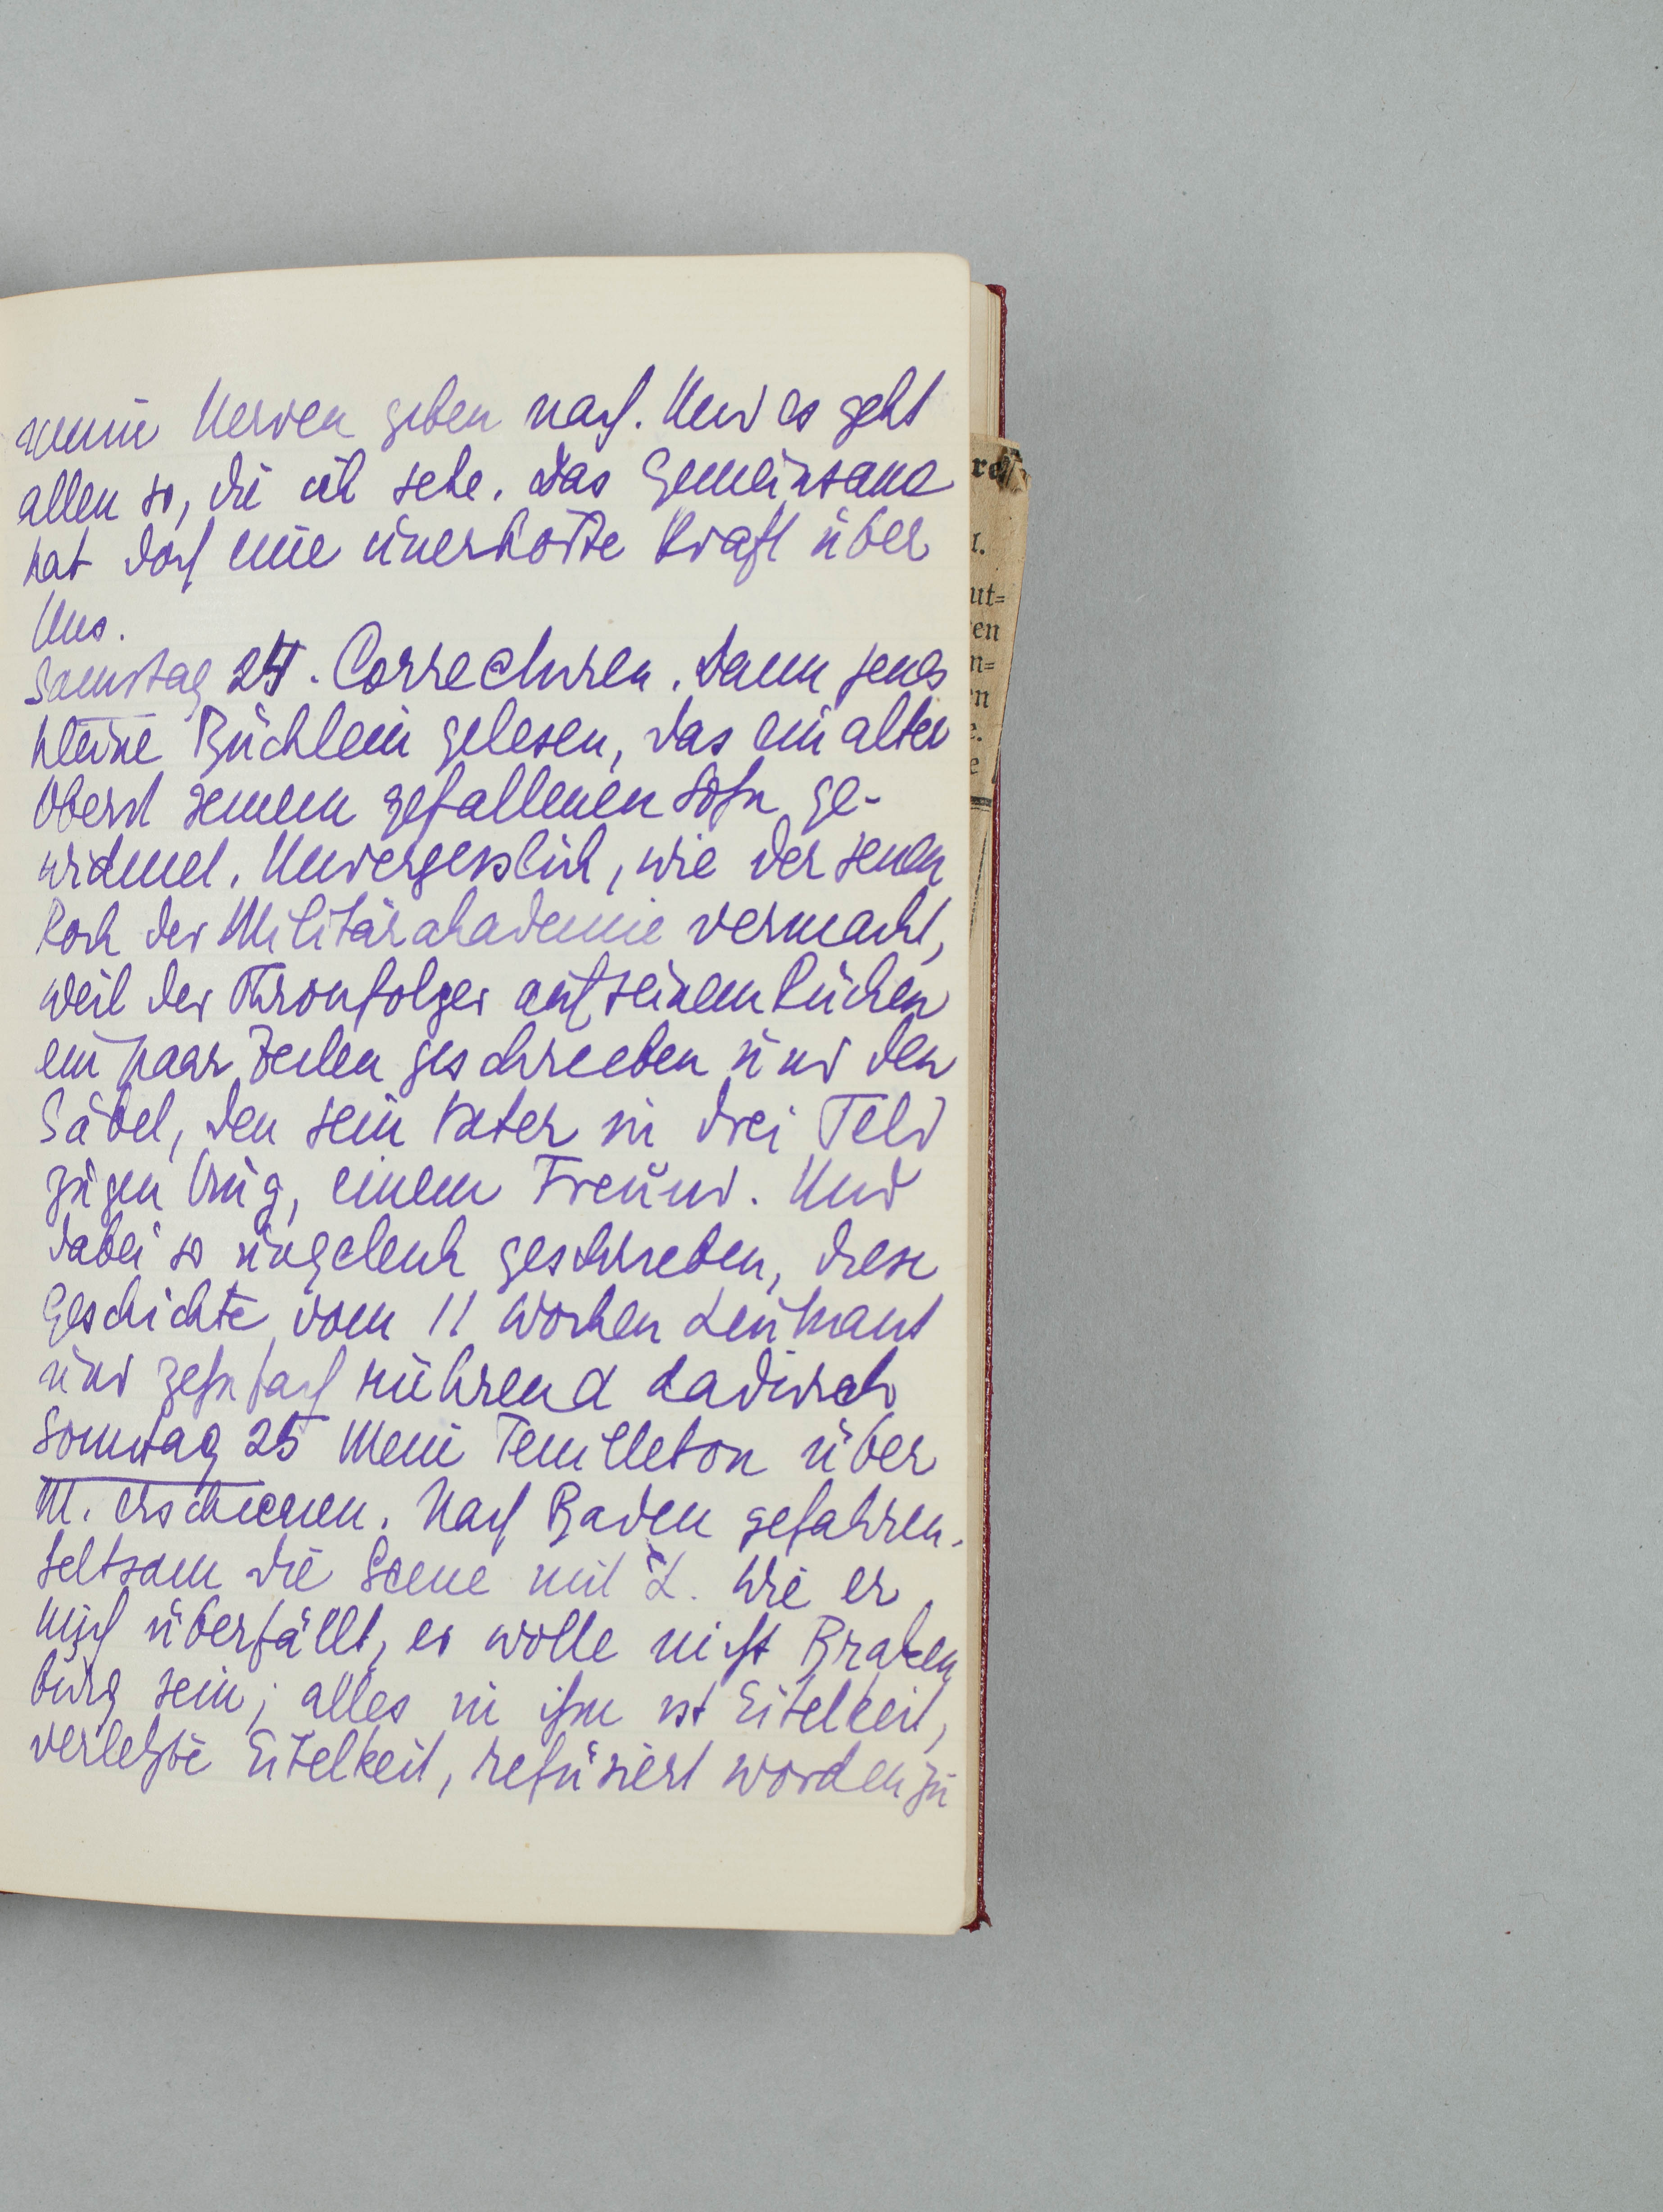 meine Nerven geben nach. Und es geht
allen so, die ich sehe. Das Gemeinsame
hat doch eine unerhörte Kraft über
Uns.
Samstag 24. Correcturen. Dann jenes
kleine Büchlein gelesen, das ein alter
Oberst seinem gefallenen Sohn ge-
widmet. Unvergesslich, wie der seinen
Rock der Militärakademie vermacht,
weil der Thronfolger auf seinem Rücken
ein paar Zeilen geschrieben und den
Säbel, den sein Vater in drei Feld
zügen trug, einem Freund. Und
dabei so ungelenk geschrieben, diese
Geschichte vom 11 Wochen Leutnant
und zehnfach rührend dadurch
Sonntag 25 Mein Feuilleton über
M. erschienen. Nach Baden gefahren.
Seltsam die Scene mit L. Wie er
mich überfällt, er wolle nicht Braken
burg sein; alles in ihm ist Eitelkeit,
verletzte Eitelkeit, refüsiert worden zu
re
ut=
en
n=
en
e.
e